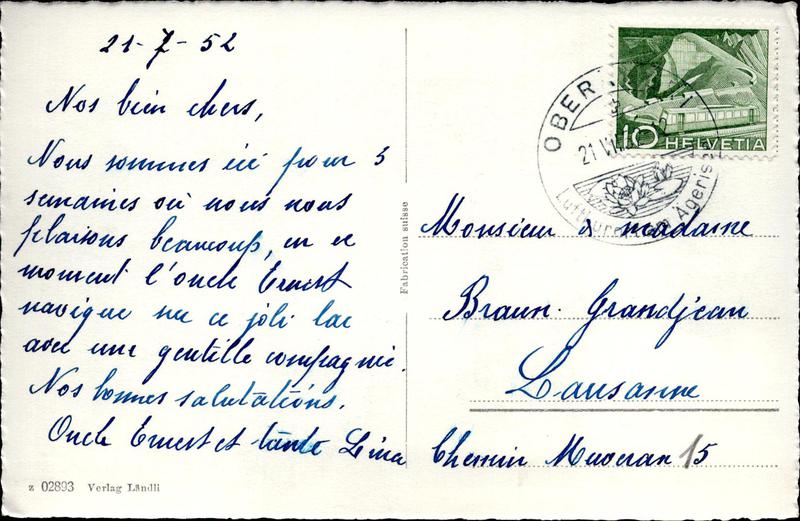 21-7-52
Nos bien chers,
Nous sommes ici pour 3
semaines où nous nous
plaisons beaucoup, en ce
moment l'oncle Ernest
navigue sur ce joli lac
avec une gentille compagnie.
Nos bonnes salutations.
Oncle Ernest et tante Lina
z 02893 Verlag Ländli
Fabrication suisse
10 HELVETIA
OBER
21 VII
Luftkurort am Ägerisee
Monsieur & madame
Braun-Grandjean
Lausanne
Chemin Muveran 15